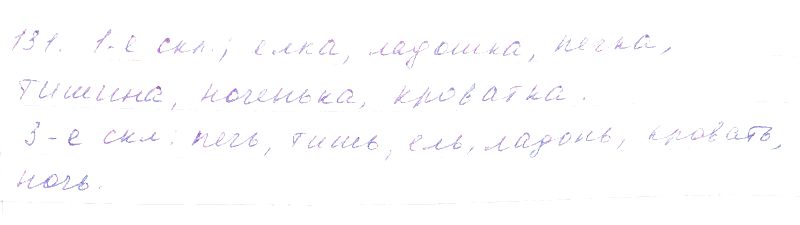 131. 1-е скл.; елка, ладошка, печка,
тишина, ноченька, кроватка.
3-е скл: печь, тишь, ель, ладонь, кровать,
ночь.